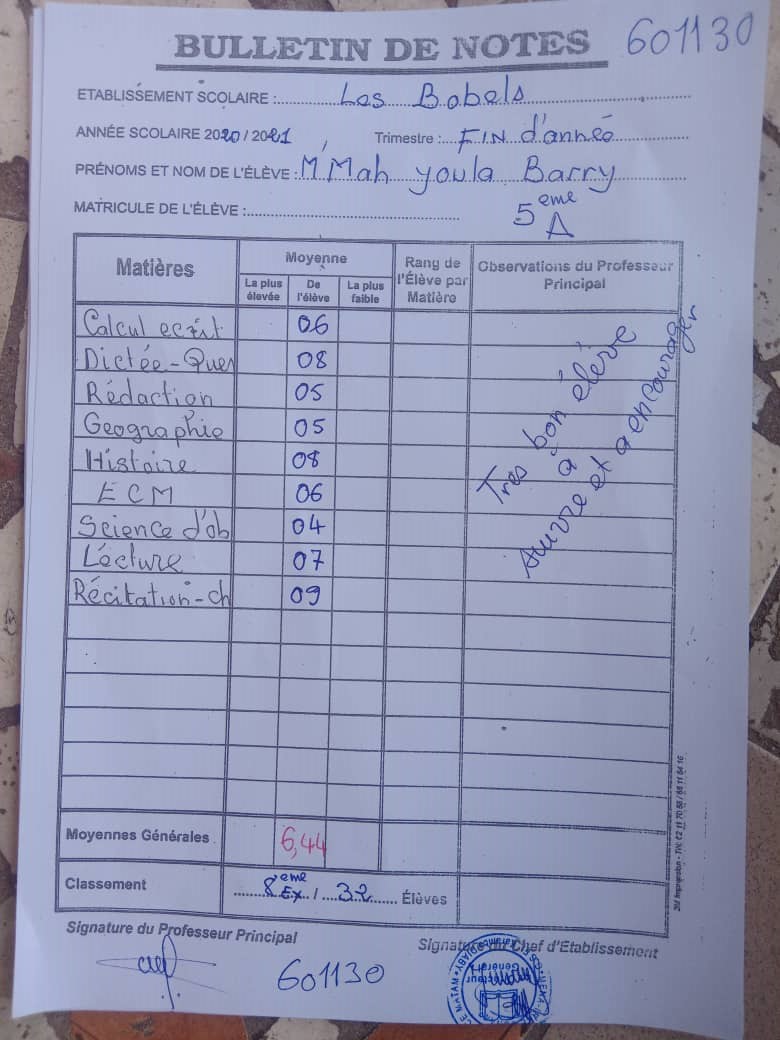 BULLETIN DE NOTES 601130
ETABLISSEMENT SCOLAIRE : Les Bobels
ANNÉE SCOLAIRE 2020 / 2021 Trimestre : FIN d'année
PRÉNOMS ET NOM DE L'ÉLÈVE : M'Mah youla Barry
MATRICULE DE L'ÉLÈVE : 5eme A
Matières Moyenne Rang de l'Élève par Matière Observations du Professeur Principal
La plus élevée De l'élève La plus faible
Calcul ecrit 06
Dictée-Ques 08
Rédaction 05
Geographie 05
Histoire 08
ECM 06
Science d'ob 04
Lecture 07
Récitation-ch 09
Tres bon élève
à
suivre et a encourager
Moyennes Générales 6,44
Classement 8eme Ex / 32 Élèves
Signature du Professeur Principal Signature du Chef d'Etablissement
601130